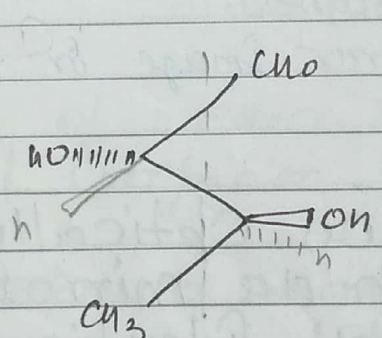 CHO
HO
H
OH
H
CH3